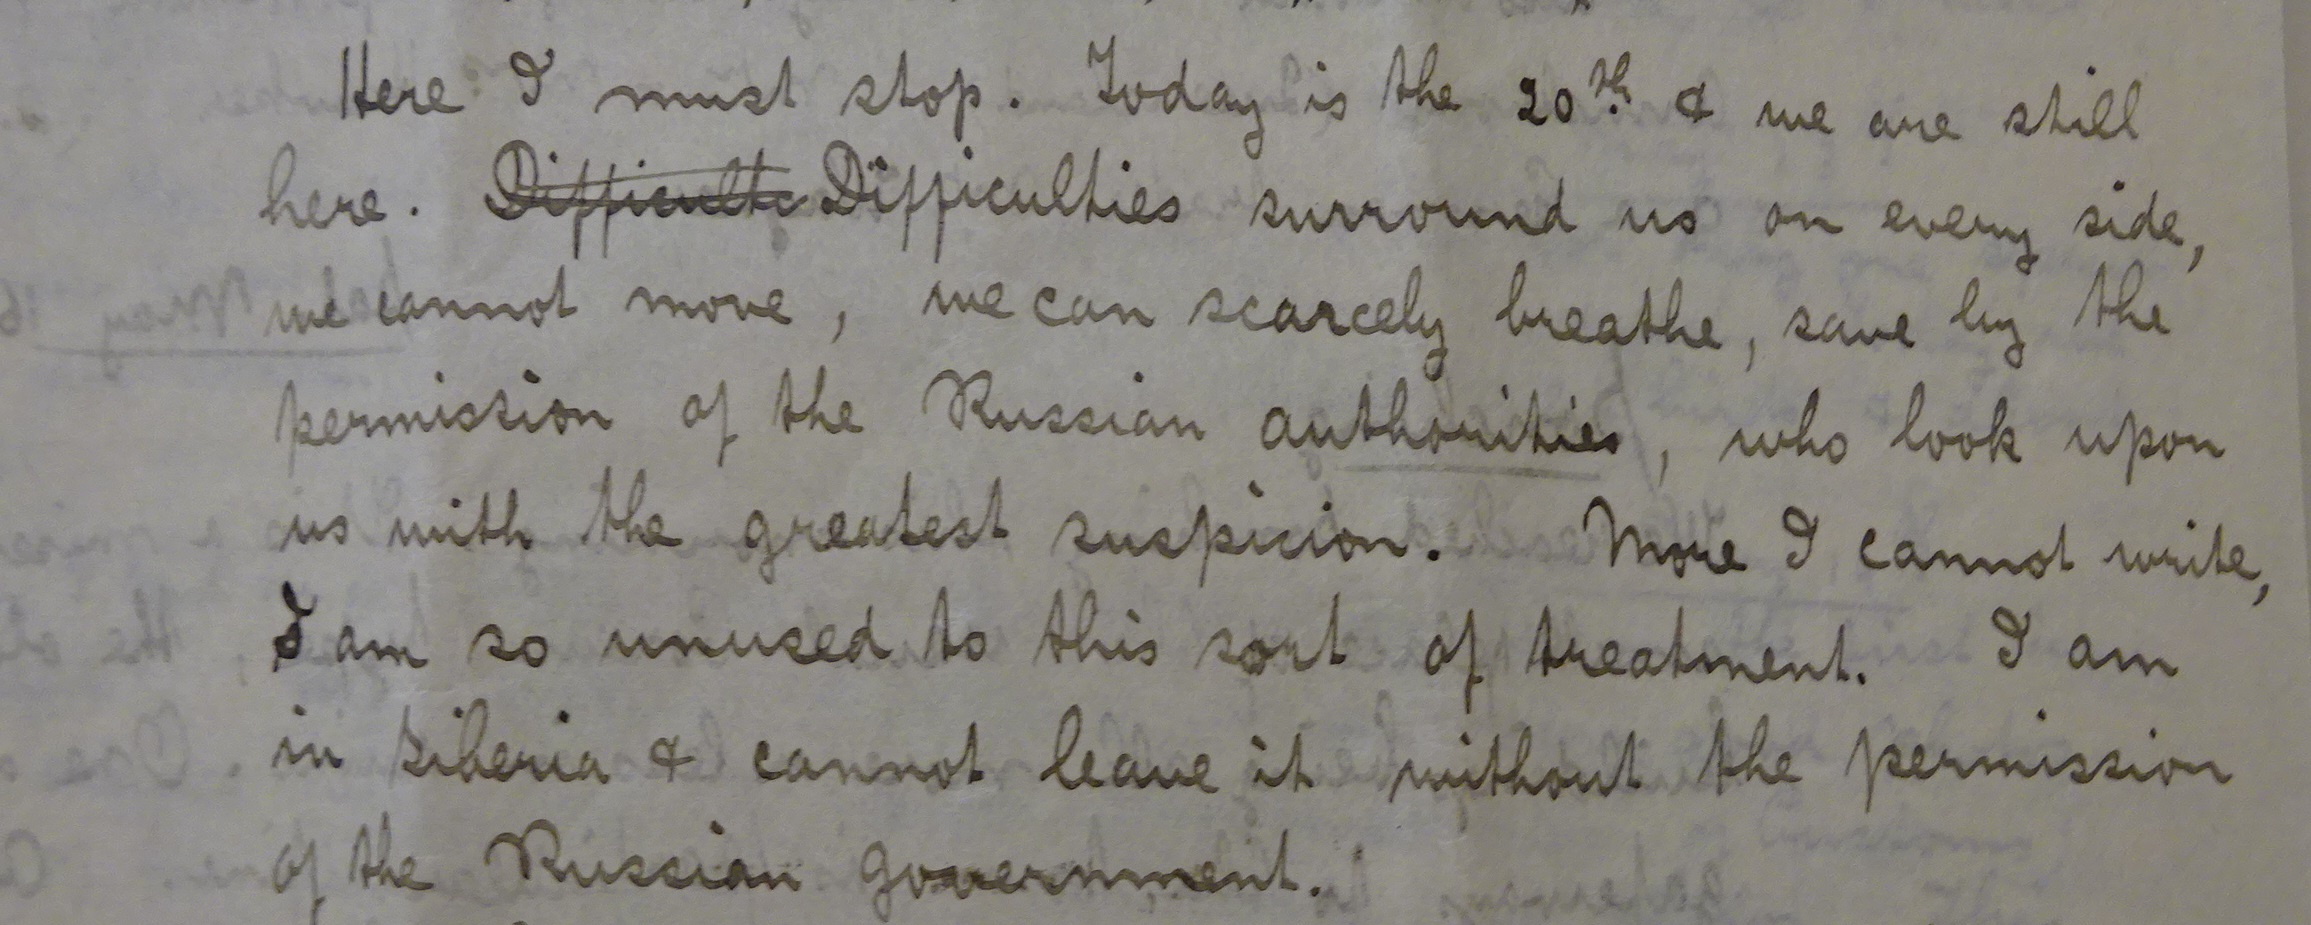 Here I must stop. Today is the 20th. & we are still
here. Difficulte Difficulties surround us on every side,
we cannot move, we can scarcely breathe, save by the
permission of the Russian authorities, who look upon
us with the greatest suspicion. More I cannot write,
I am so unused to this sort of treatment. I am
in Siberia & cannot leave it without the permission
of the Russian government.